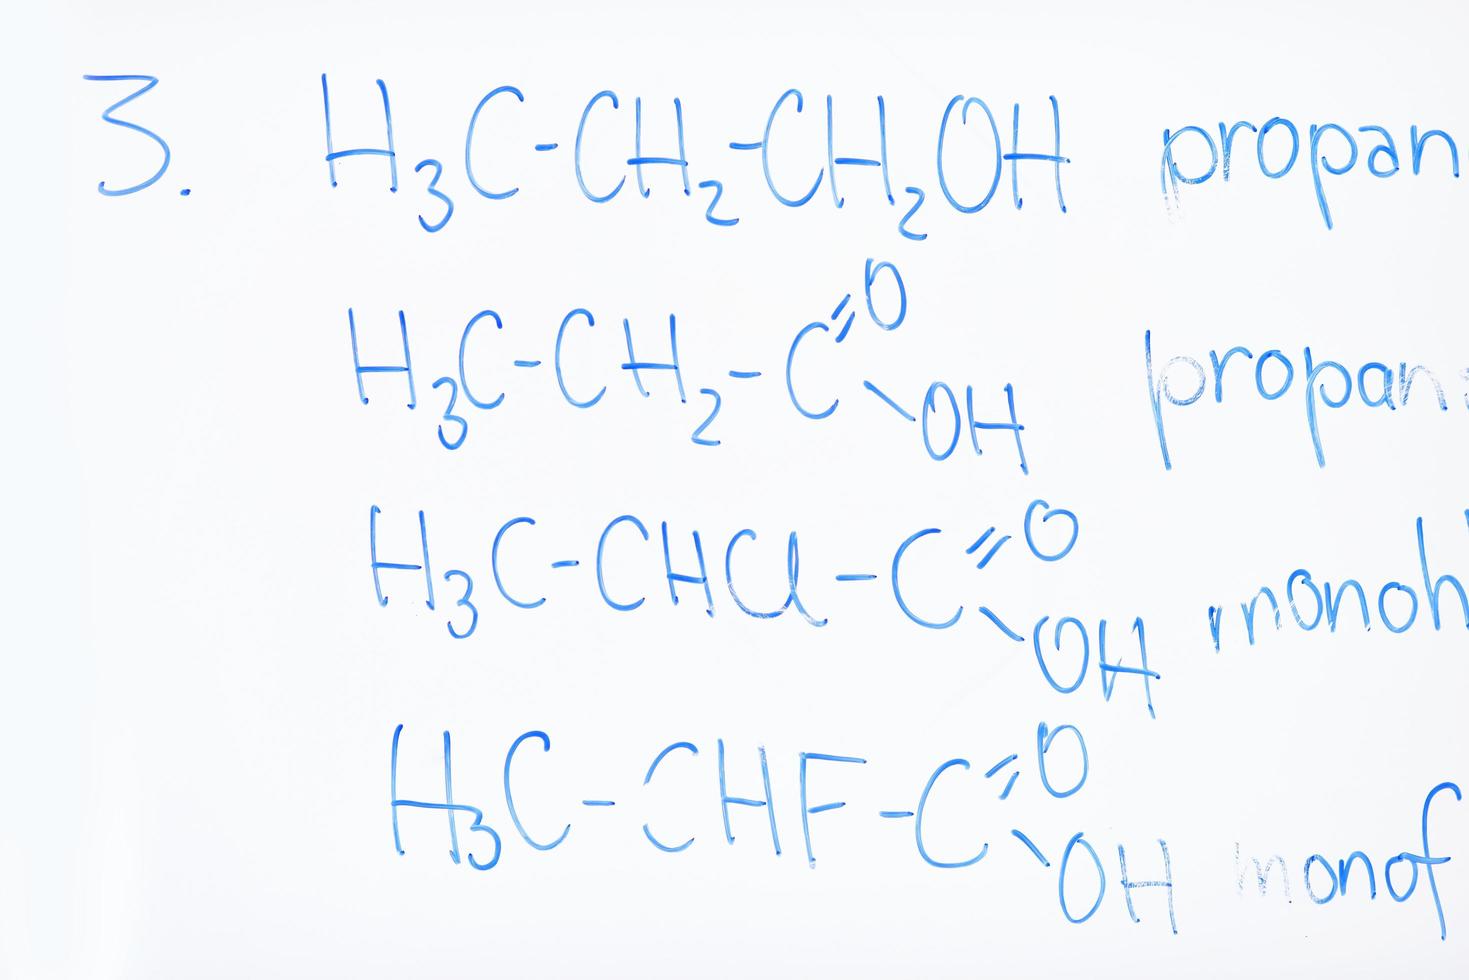 3. H₃C-CH₂-CH₂OH propan
H₃C-CH₂-C=O\OH propan
H₃C-CHCl-C=O\OH monoh
H₃C-CHF-C=O\OH monof